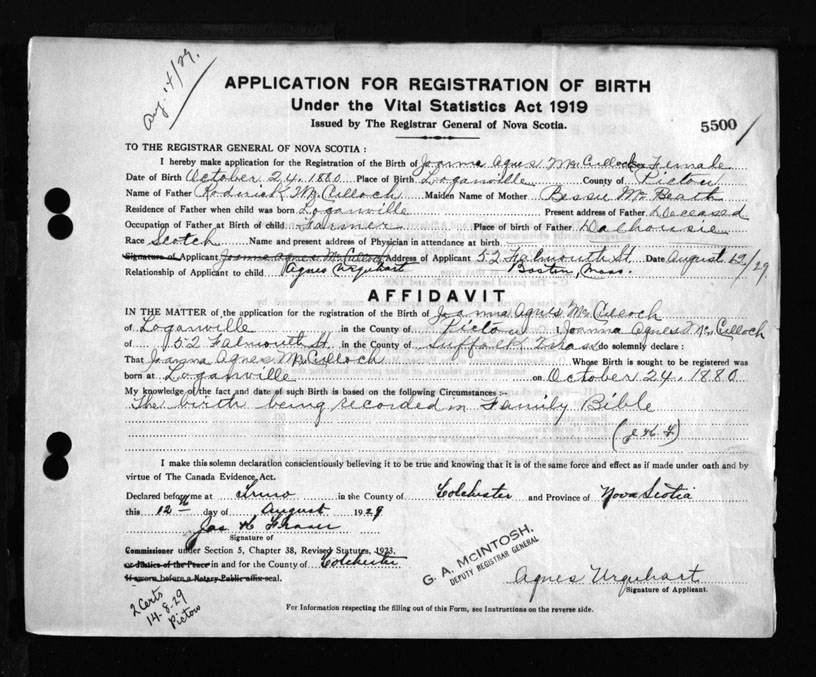 Aug. 14/29.
APPLICATION FOR REGISTRATION OF BIRTH
Under the Vital Statistics Act 1919
Issued by The Registrar General of Nova Scotia.
5500
TO THE REGISTRAR GENERAL OF NOVA SCOTIA :
I hereby make application for the Registration of the Birth of Joanna Agnes McCulloch Sex Female
Date of Birth October 24, 1880 Place of Birth Loganville County of Pictou
Name of Father Roderick McCulloch Maiden Name of Mother Bessie McBeath
Residence of Father when child was born Loganville Present address of Father Deceased
Occupation of Father at Birth of child Farmer Place of birth of Father Dalhousie
Race Scotch Name and present address of Physician in attendance at birth
Signature of Applicant Joanna Agnes McCulloch Address of Applicant 52 Falmouth St Date August 12/29
Relationship of Applicant to child Agnes Urquhart Boston, Mass.
AFFIDAVIT
IN THE MATTER of the application for the registration of the Birth of Joanna Agnes McCulloch
of Loganville in the County of Pictou I, Joanna Agnes McCulloch
of 52 Falmouth St. in the County of Suffolk Mass do solemnly declare :
That Joanna Agnes McCulloch Whose Birth is sought to be registered was
born at Loganville on October 24, 1880
My knowledge of the fact and date of such Birth is based on the following Circumstances :-
The birth being recorded in Family Bible
(J H F)
I make this solemn declaration conscientiously believing it to be true and knowing that it is of the same force and effect as if made under oath and by
virtue of The Canada Evidence Act.
Declared before me at Truro in the County of Colchester and Province of Nova Scotia
this 12th day of August 1929
Jas H Fraser
Signature of
Commissioner under Section 5, Chapter 38, Revised Statutes, 1923.
or Justice of the Peace in and for the County of Colchester
If sworn before a Notary Public affix seal.
G. A. McINTOSH,
DEPUTY REGISTRAR GENERAL
Agnes Urquhart
Signature of Applicant.
2 Certs
14.8.29
Pictou
For Information respecting the filling out of this Form, see Instructions on the reverse side.